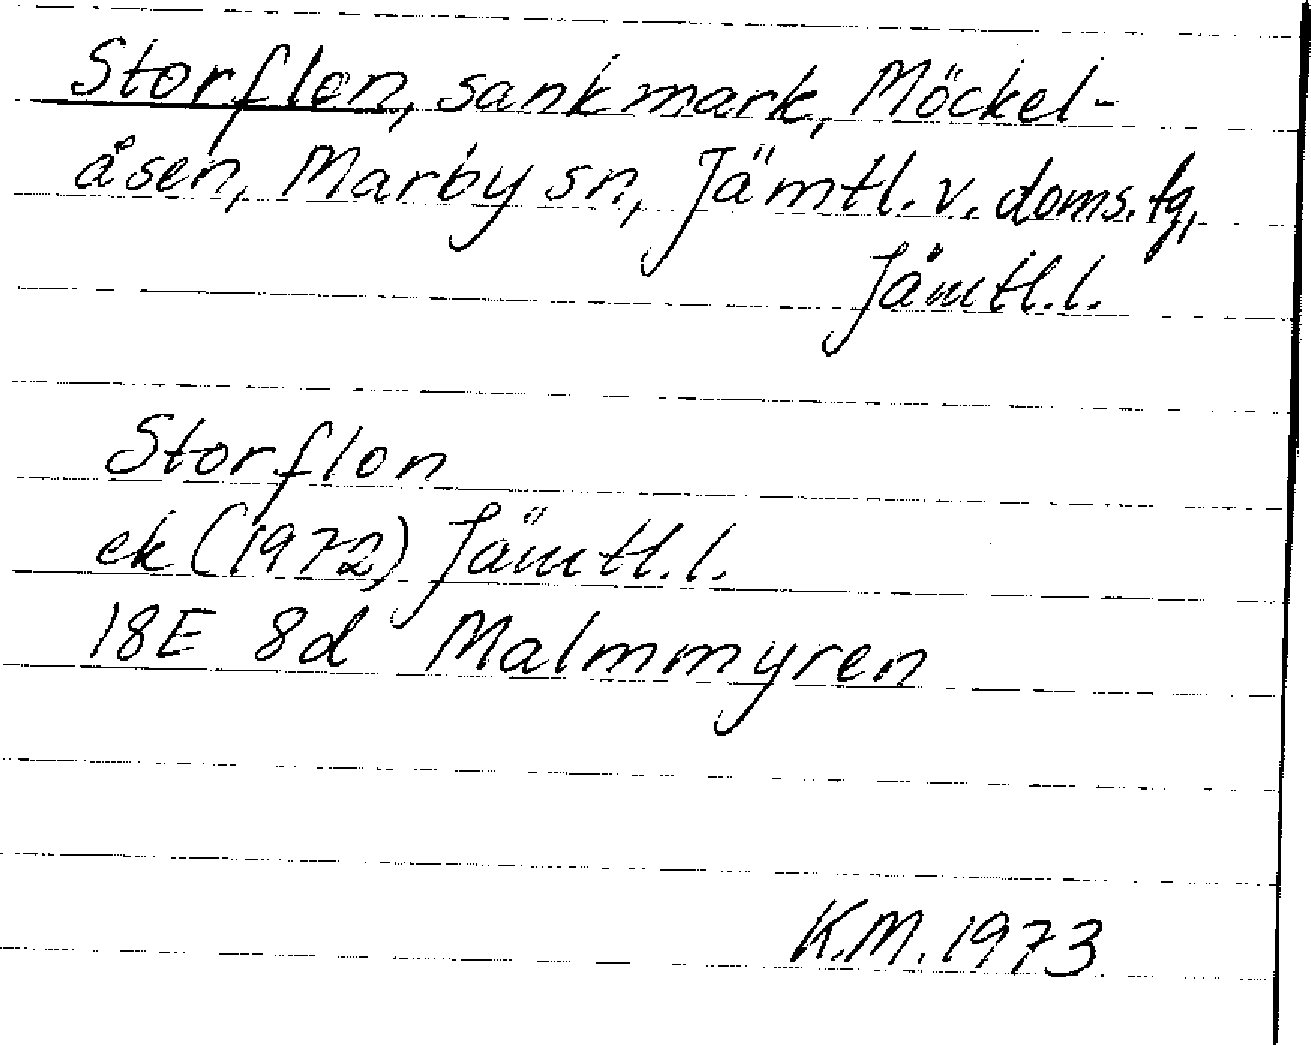 Storflon, sankmark, Möckel-
åsen, Marby sn, Jämtl. v. doms. tg,
Jämtl. l.
Storflon
ek (1972) Jämtl. l.
18E 8d Malmmyren
K.M. 1973